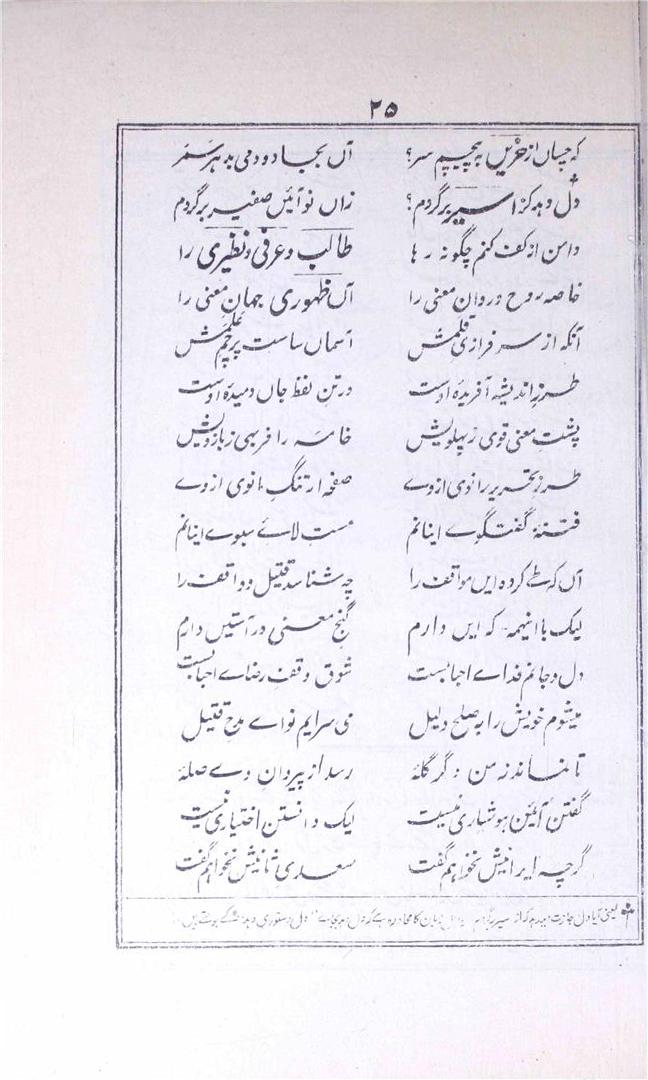 ۲۵
که چساں از حزیں به پیچم سر؟ آں بجادو دمی بدهر سمر
دل دهد کز اسیر برگردم؟ زاں نو آئیں صفیر برگردم
دامن از کف کنم چگونه رها طالب و عرفی و نظیری را
خاصه روح و روان معنی را آں ظهوری جهان معنی را
آنکه از سرفرازی قلمش آسماں ساست پرچم علمش
طرز اندیشه آفریدۂ اوست در تن لفظ جاں دمیدۂ اوست
پشت معنی قوی ز پهلویش خامه را فربهی ز بازویش
طرز تحریر را نوی از وے صفحه ارتنگ مانوی از وے
فتنۂ گفتگوے اینانم مست لاے سبوے اینانم
آں که طے کرده ایں مواقف را چه شناسد قتیل و واقف را
لیک با اینهمه که ایں دارم گنج معنی در آستیں دارم
دل و جانم فداے احبابست شوق وقف رضاے احبابست
میشوم خویش را به صلح دلیل می سرایم نواے مدح قتیل
تا نماند ز من دگر گلۂ رسد از پیروان وے صلۂ
گفتن آئین هوشیاری نیست لیک دانستن اختیاری نیست
گرچه ایرانیش نخواهم گفت سعدی ثانیش نخواهم گفت
یعنی آیا دل اجازت میدهد که از اسیر برگردم